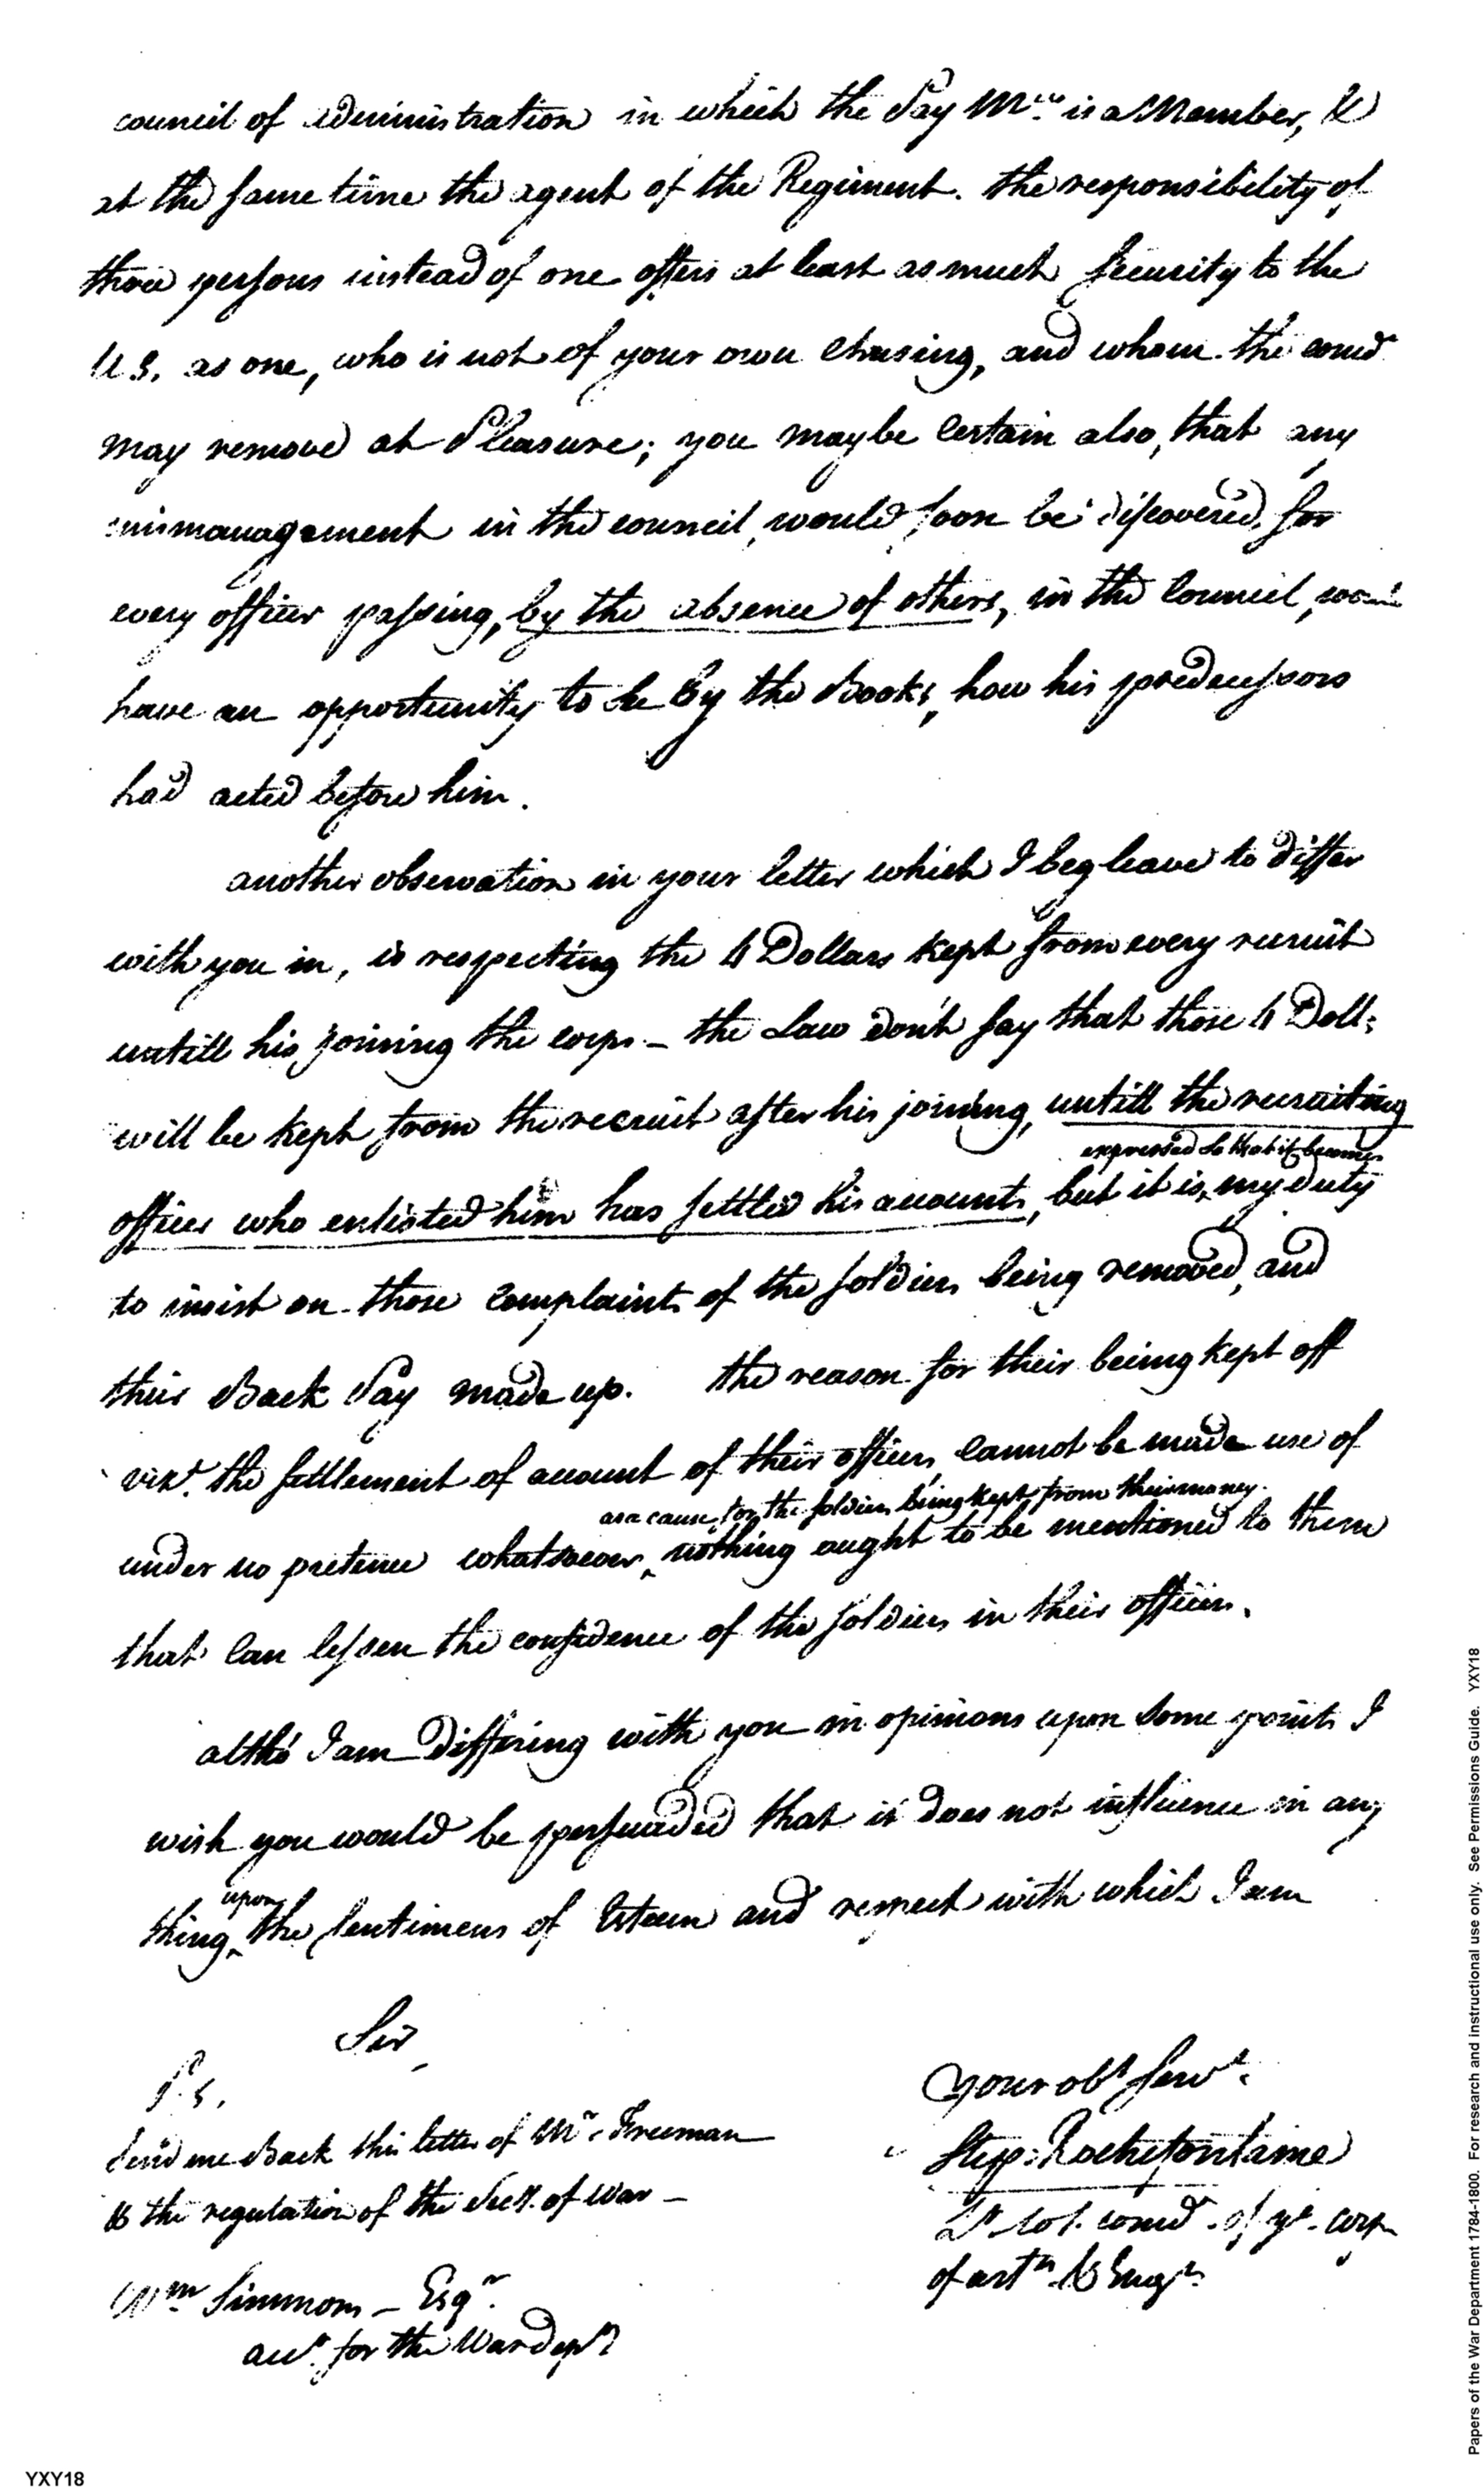 council of administration in which the Pay Mrs. is a Member, &
at the same time the agent of the Regiment. the responsibility of
three persons instead of one offers at least as much security to the
U.S. as one, who is not of your own chusing, and whom the comdt
may remove at Pleasure; you may be Certain also, that any
mismanagement in the council, would soon be discovered, for
every officer passing, by the absence of others, in the Council, would
have an opportunity to se by the Books, how his predecessors
had acted before him.
another observation in your letter which I beg leave to differ
with you in, is respecting the 4 Dollars kept from every recruit
untill his joining the corps - the Law don't say that those 4 Doll:
will be kept from the recruit after his joining, untill the recruiting
expressed so that it becomes
officer who enlisted him has settled his accounts, but it is my duty
to insist on those complaints of the soldiers being removed, and
their Back Pay made up. the reason for their being kept off
vizt. the settlement of account of their officers cannot be made use of
as a cause for the soldiers being kept from their money.
under no pretence whatsoever, nothing ought to be mentioned to them
that Can lessen the confidence of the soldiers in their officers.
altho' I am Differing with you in opinions upon some points I
wish you would be persuaded that it does not influence in any
upon
thing the sentimens of Esteem and respect with which I am
Sir
your obt servt.
P.S.
Send me Back the letter of Mr. Freeman
& the regulation of the Secy. of War -
Step: Rochefontaine
Lt Col. comdt. of ye. corps
of artrs & Engrs.
Wm Simmons - Esqr.
acct. for the War Dept
Papers of the War Department 1784-1800. For research and instructional use only. See Permissions Guide. YXY18
YXY18